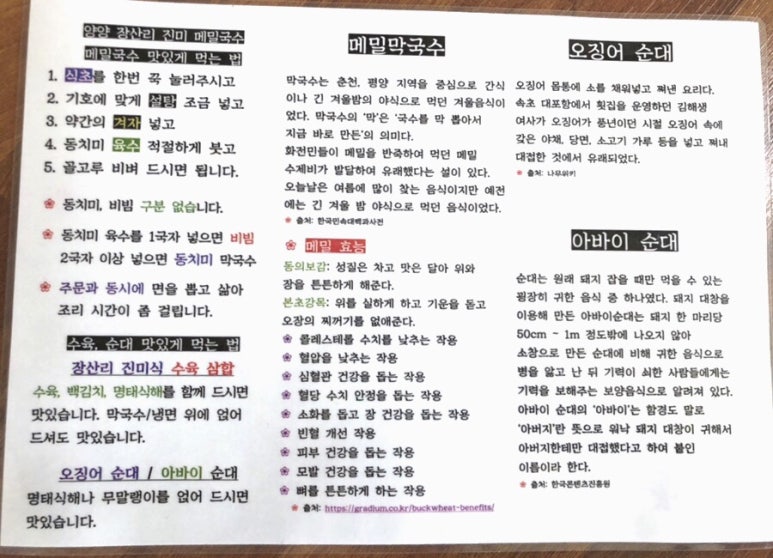 양양 장산리 진미 메밀국수
메밀국수 맛있게 먹는 법
1. 식초를 한번 쭉 눌러주시고
2. 기호에 맞게 설탕 조금 넣고
3. 약간의 겨자 넣고
4. 동치미 육수 적절하게 붓고
5. 골고루 비벼 드시면 됩니다.
❀ 동치미, 비빔 구분 없습니다.
❀ 동치미 육수를 1국자 넣으면 비빔
2국자 이상 넣으면 동치미 막국수
❀ 주문과 동시에 면을 뽑고 삶아
조리 시간이 좀 걸립니다.
수육, 순대 맛있게 먹는 법
장산리 진미식 수육 삼합
수육, 백김치, 명태식해를 함께 드시면
맛있습니다. 막국수/냉면 위에 얹어
드셔도 맛있습니다.
오징어 순대 / 아바이 순대
명태식해나 무말랭이를 얹어 드시면
맛있습니다.
메밀막국수
막국수는 춘천, 평양 지역을 중심으로 간식
이나 긴 겨울밤의 야식으로 먹던 겨울음식이
었다. 막국수의 '막'은 '국수를 막 뽑아서
지금 바로 만든'의 의미다.
화전민들이 메밀을 반죽하여 먹던 메밀
수제비가 발달하여 유래했다는 설이 있다.
오늘날은 여름에 많이 찾는 음식이지만 예전
에는 긴 겨울 밤 야식으로 먹던 음식이었다.
❀ 출처: 한국민속대백과사전
❀ 메밀 효능
동의보감: 성질은 차고 맛은 달아 위와
장을 튼튼하게 해준다.
본초강목: 위를 실하게 하고 기운을 돋고
오장의 찌꺼기를 없애준다.
❀ 콜레스테롤 수치를 낮추는 작용
❀ 혈압을 낮추는 작용
❀ 심혈관 건강을 돕는 작용
❀ 혈당 수치 안정을 돕는 작용
❀ 소화를 돕고 장 건강을 돕는 작용
❀ 빈혈 개선 작용
❀ 피부 건강을 돕는 작용
❀ 모발 건강을 돕는 작용
❀ 뼈를 튼튼하게 하는 작용
❀ 출처: https://gradium.co.kr/buckwheat-benefits/
오징어 순대
오징어 몸통에 소를 채워넣고 쪄낸 요리다.
속초 대포항에서 횟집을 운영하던 김해생
여사가 오징어가 풍년이던 시절 오징어 속에
갖은 야채, 당면, 소고기 가루 등을 넣고 쪄내
대접한 것에서 유래되었다.
❀ 출처: 나무위키
아바이 순대
순대는 원래 돼지 잡을 때만 먹을 수 있는
굉장히 귀한 음식 중 하나였다. 돼지 대창을
이용해 만든 아바이순대는 돼지 한 마리당
50cm ~ 1m 정도밖에 나오지 않아
소창으로 만든 순대에 비해 귀한 음식으로
병을 앓고 난 뒤 기력이 쇠한 사람들에게는
기력을 보해주는 보양음식으로 알려져 있다.
아바이 순대의 '아바이'는 함경도 말로
'아버지'란 뜻으로 워낙 돼지 대창이 귀해서
아버지한테만 대접했다고 하여 붙인
이름이라 한다.
❀ 출처: 한국콘텐츠진흥원